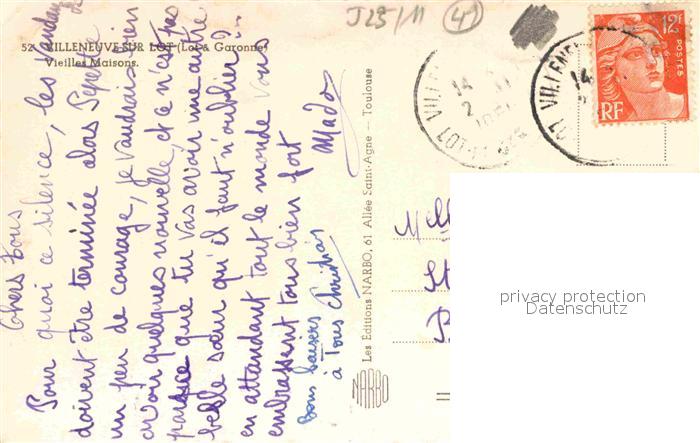 J23/11 (4)
52 VILLENEUVE-SUR-LOT (Lot & Garonne)
Vieilles Maisons.
Chers tous
Pour quoi ce silence, les vendanges
doivent être terminée alors Pepette
un peu de courage, je vaudrais bien
avoir quelques nouvelle et ce n'est pas
parsce que tu vas avoir une autre
belle sœur qu'il faut n'oublier?
en attandant tout le monde vous
embrassent tous bien fort
Mado
bons baisers
à Tous Christian
Les Editions NARBO, 61 Allée Saint-Agne — Toulouse
NARBO
12F
POSTES
RF
14
2
LOT VILLE
14
LOT VILLENE
Mell
St
privacy protection
Datenschutz